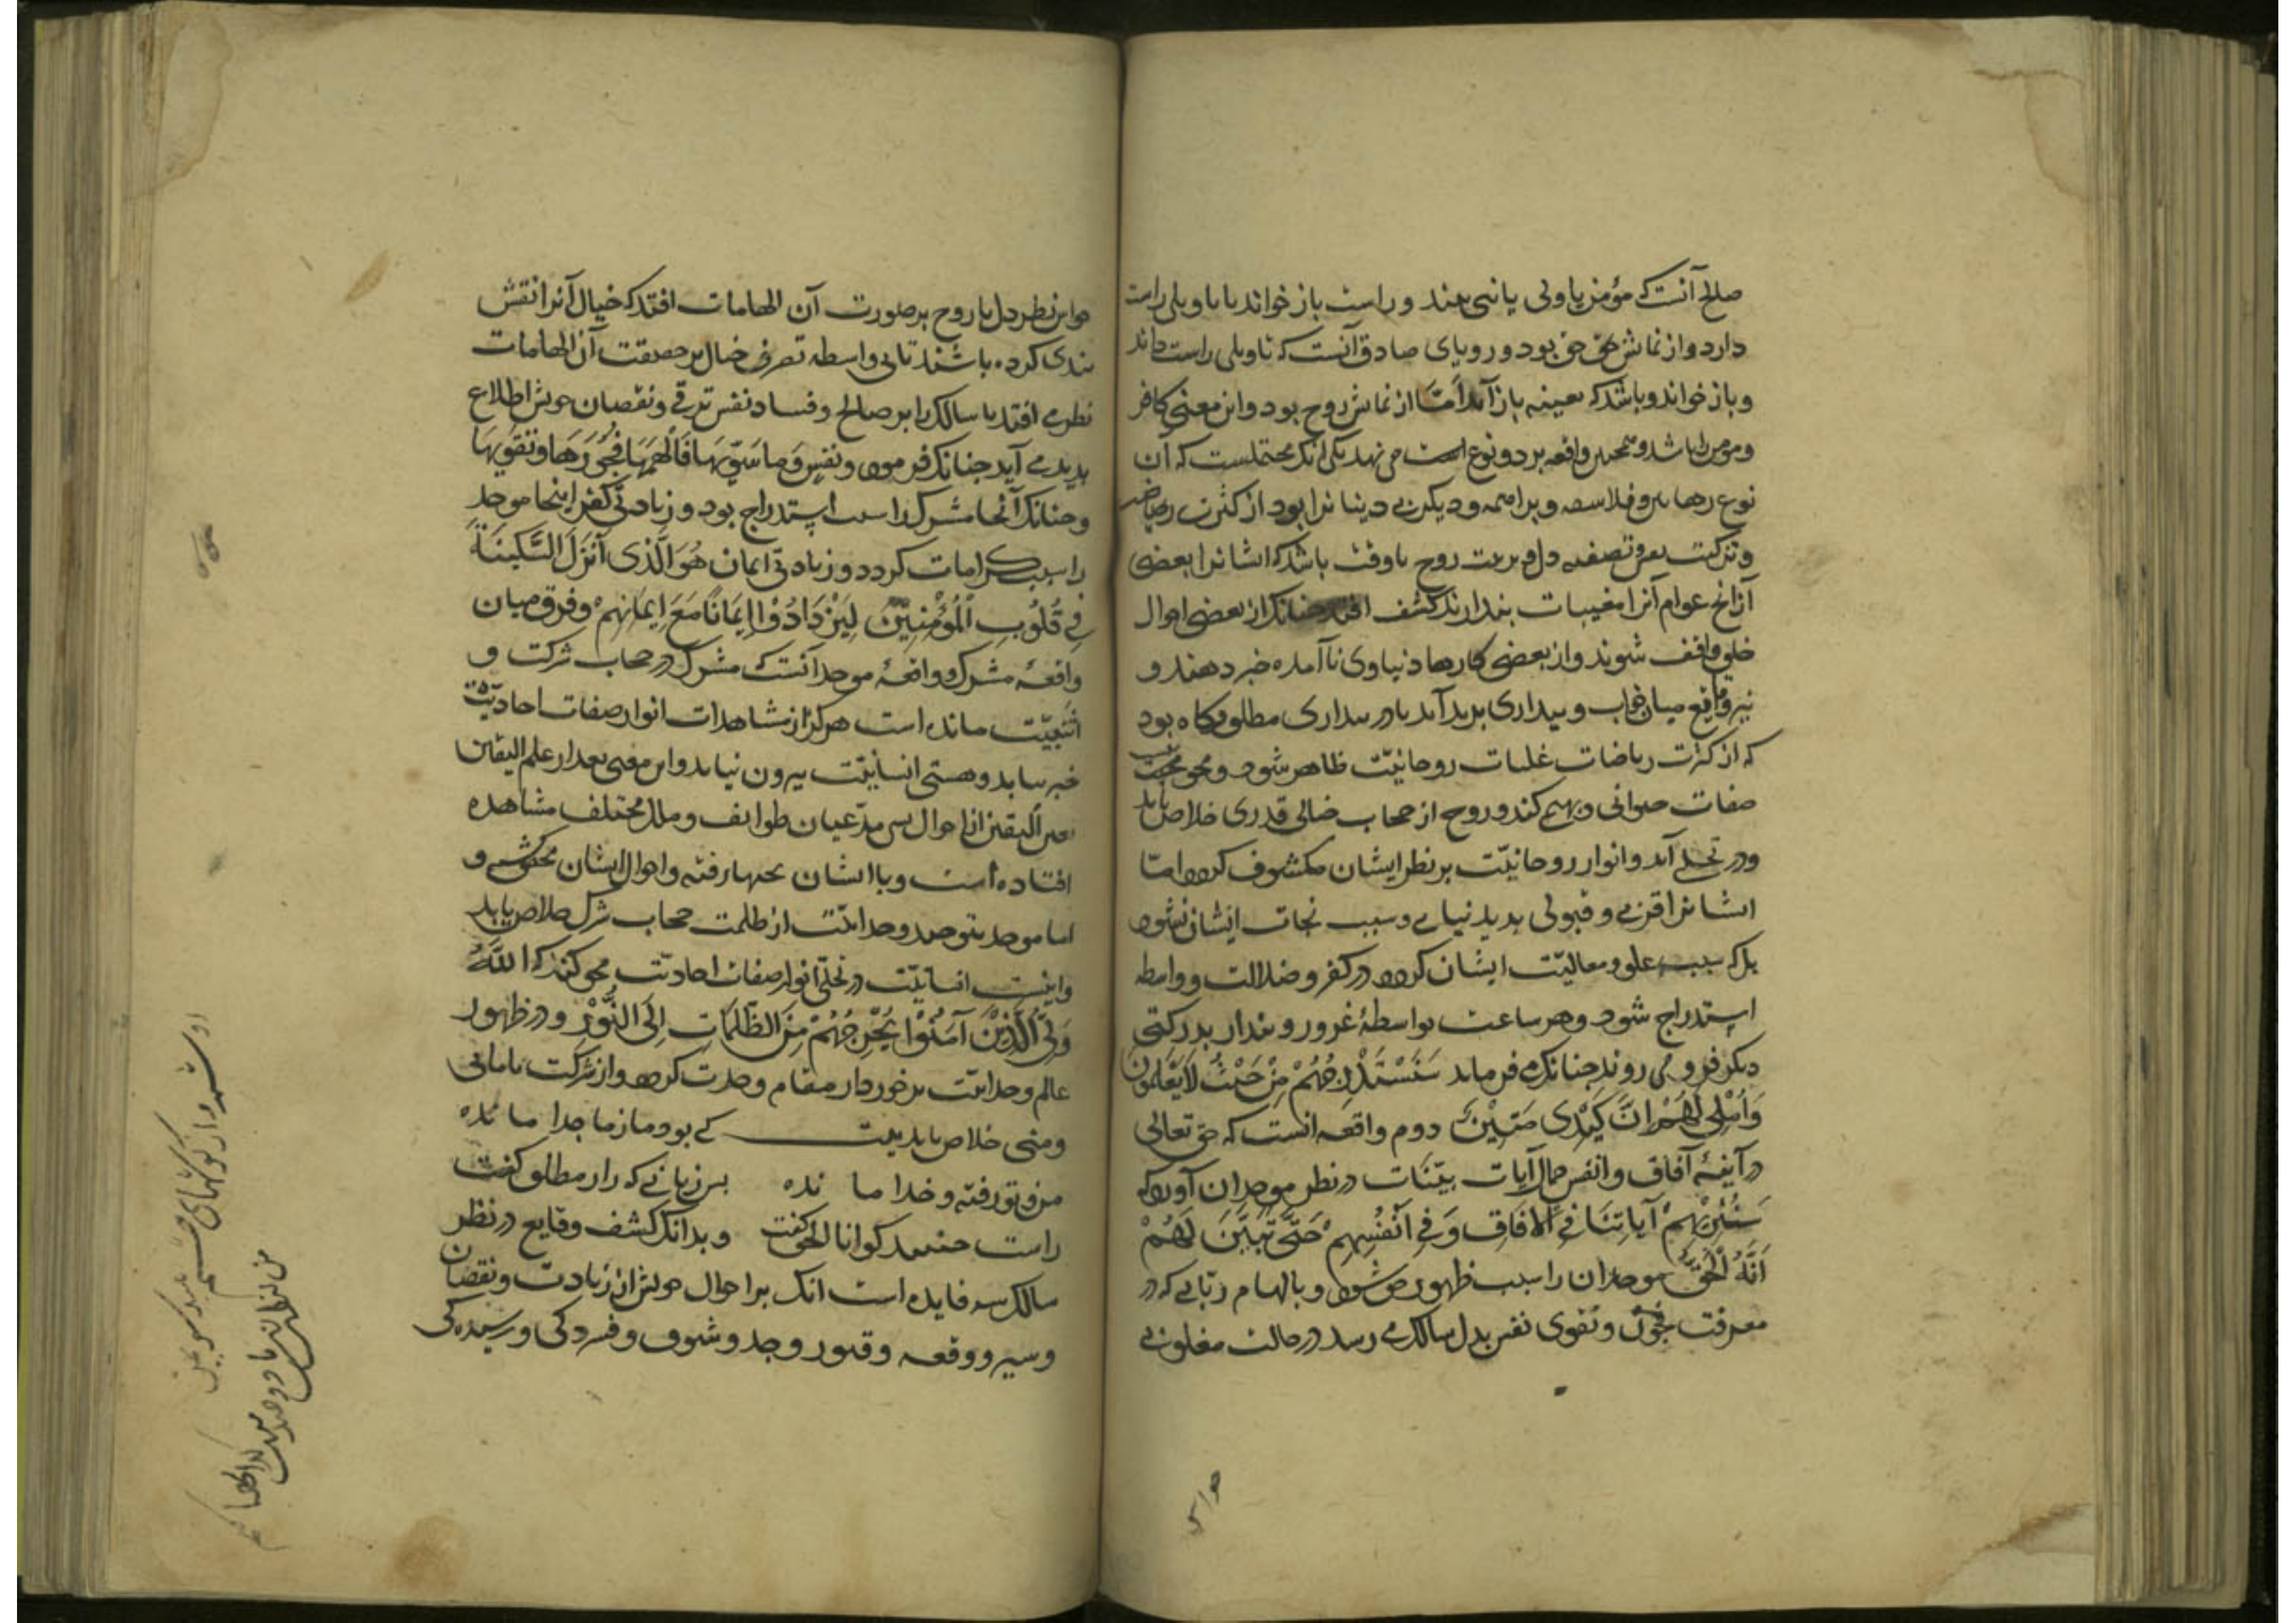 صالح آنست که مؤمن یا ولی یا نبی بیند و راست باز خواند یا تاویلی راست
دارد و از نمایش حق بود و رویای صادق آنست که تاویلی راست داند
و باز خواند و باشد که بعینه باز آید اما از نمایش روح بود و این معنی کافر
و مومن را باشد و همچنین واقعه بر دو نوع است می نهد یکی آنک محتملست که آن
نوع رهابین و فلاسفه و براهمه و دیگر بی دینانرا بود از کثرت ریاضت
و تزکیت نفس و تصفیه دل و تربیت روح تا وقت باشد که ایشانرا بعضی
از آنچ عوام آنرا مغیبات پندارند کشف افتد چنانک از بعضی احوال
خلق واقف شوند و از بعضی کارها دنیاوی ناآمده خبر دهند و
نیز وقایع میان خواب و بیداری پدید آید یا در بیداری مطلق و گاه بود
که از کثرت ریاضات غلبات روحانیّت ظاهر شود و محو
صفات حیوانی و بهیمی کند و روح از حجاب خیالی قدری خلاص یابد
و در تجلی آید و انوار روحانیّت بر نظر ایشان مکشوف گردد امّا
ایشانرا قربی و قبولی پدید نیاید و سبب نجات ایشان نشود
بلکه سبب غلو و مغالبت ایشان گردد در کفر و ضلالت و واسطه
استدراج شود و هر ساعت بواسطهٔ غرور و پندار بدرکتی
دیگر فرو می روند چنانک می فرماید سَنَسْتَدْرِجُهُمْ مِنْ حَیْثُ لَا یَعْلَمُونَ
وَاُمْلِی لَهُمْ اِنَّ کَیْدِی مَتِیْنٌ دوم واقعه انست که حق تعالی
در آینهٔ آفاق و انفس جمال آیات بیّنات در نظر موحدان آورد که
سَنُرِیْهِمْ آیَاتِنَا فِی الْآفَاقِ وَفِی اَنْفُسِهِمْ حَتَّی یَتَبَیَّنَ لَهُمْ
اَنَّهُ الْحَقُّ موحدان را سبب ظهور حق شود و بالهام ربّانی که در
معرفت فجور و تقوی نفس بدل سالک می رسد در حالت مغلوبی
حواس
حواس نظر دل یا روح بر صورت آن الهامات افتد که خیال آنرا نقش
بندی کرده باشند تا بی واسطه تصرف خیال بر حقیقت آن الهامات
نظر می افتد تا سالک را بر صالح و فساد نفس ترقی و نقصان خویش اطلاع
پدید می آید چنانک فرمود وَنَفْسٍ وَمَا سَوّٰیهَا فَاَلْهَمَهَا فُجُورَهَا وَتَقْوٰیهَا
و چنانک آنجا مشرک را سبب استدراج بود و زیادتی کفر اینجا موحد
را سبب کرامات گردد و زیادتی ایمان هُوَ الَّذِی اَنْزَلَ السَّکِیْنَةَ
فِی قُلُوبِ الْمُؤْمِنِیْنَ لِیَزْدَادُوْا اِیْمَانًا مَعَ اِیمَانِهِمْ و فرق میان
واقعهٔ مشرک و واقعهٔ موحد آنست که مشرک در حجاب شرکت و
اثنیّت مانده است هرگز از مشاهدات انوار صفات احادیّت
خبر نیابد و هستی انسانیّت بیرون نیاید و این معنی بعد از علم الیقین
بعین الیقین از احوال بسی مدّعیان طوایف و ملل مختلف مشاهده
افتاده است و با ایشان بحثها رفته و احوال ایشان محقق شده
اما موحد بتوحید وحدانیّت از ظلمت حجاب شرک خلاص یابد
و انیت انسانیّت در تجلّی انوار صفات احادیّت محو کند که اللّٰهُ
وَلِیُّ الَّذِیْنَ آمَنُوْا یُخْرِجُهُمْ مِنَ الظُّلُمَاتِ اِلَی النُّوْرِ و در ظهور
عالم وحدانیّت برخوردار مقام وحدت گردد و از شرکت تا مائی
و منی خلاص یابد بیت کی بود ما ز ما جدا ما نده
من و تو رفته و خدا ما نده بس زبانی که راز مطلق گفت
راست جنبید کو انا الحق گفت و بدانک کشف وقایع در نظر
سالک سه فایده است آنک بر احوال خویش از زیادت و نقصان
و سیر و وقفه و فتور و وجد و شوق و فسردگی و رسیدگی